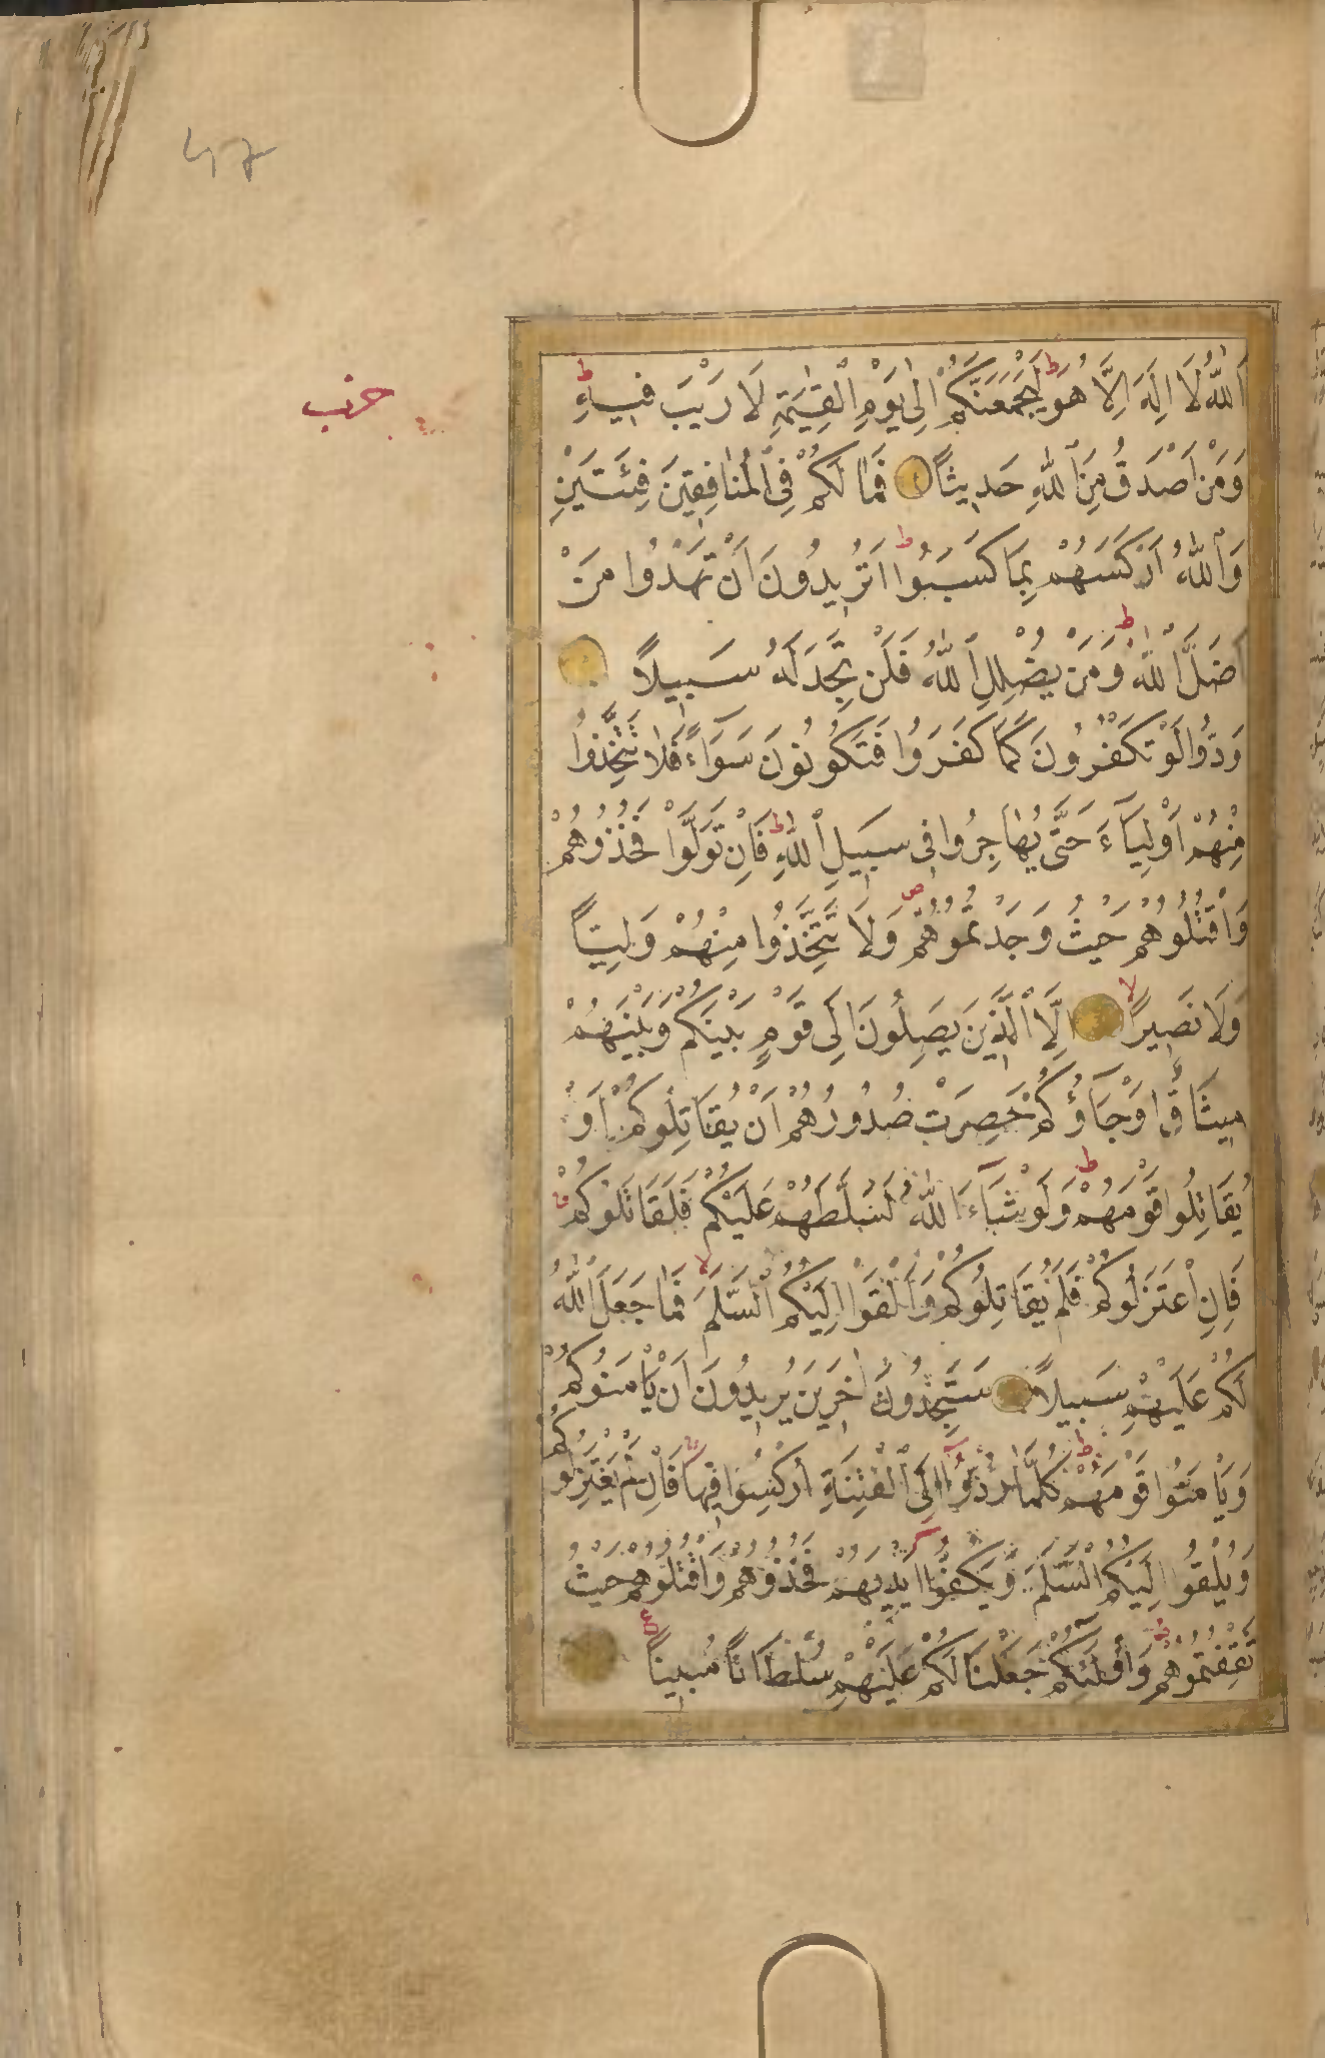 47
حزب
اَللّٰهُ لَا اِلٰهَ اِلَّا هُوَ لَيَجْمَعَنَّكُمْ اِلٰى يَوْمِ الْقِيٰمَةِ لَا رَيْبَ فِيهِ
وَمَنْ اَصْدَقُ مِنَ اللّٰهِ حَدِيثًا فَمَا لَكُمْ فِي الْمُنَافِقِينَ فِئَتَيْنِ
وَاللّٰهُ اَرْكَسَهُمْ بِمَا كَسَبُوا اَتُرِيدُونَ اَنْ تَهْدُوا مَنْ
اَضَلَّ اللّٰهُ وَمَنْ يُضْلِلِ اللّٰهُ فَلَنْ تَجِدَ لَهُ سَبِيلًا
وَدُّوا لَوْ تَكْفُرُونَ كَمَا كَفَرُوا فَتَكُونُونَ سَوَآءً فَلَا تَتَّخِذُوا
مِنْهُمْ اَوْلِيَآءَ حَتّٰى يُهَاجِرُوا فِي سَبِيلِ اللّٰهِ فَاِنْ تَوَلَّوْا فَخُذُوهُمْ
وَاقْتُلُوهُمْ حَيْثُ وَجَدْتُمُوهُمْ وَلَا تَتَّخِذُوا مِنْهُمْ وَلِيًّا
وَلَا نَصِيرًا اِلَّا الَّذِينَ يَصِلُونَ اِلٰى قَوْمٍ بَيْنَكُمْ وَبَيْنَهُمْ
مِيثَاقٌ اَوْ جَآؤُكُمْ حَصِرَتْ صُدُورُهُمْ اَنْ يُقَاتِلُوكُمْ اَوْ
يُقَاتِلُوا قَوْمَهُمْ وَلَوْ شَآءَ اللّٰهُ لَسَلَّطَهُمْ عَلَيْكُمْ فَلَقَاتَلُوكُمْ
فَاِنِ اعْتَزَلُوكُمْ فَلَمْ يُقَاتِلُوكُمْ وَاَلْقَوْا اِلَيْكُمُ السَّلَمَ فَمَا جَعَلَ اللّٰهُ
لَكُمْ عَلَيْهِمْ سَبِيلًا سَتَجِدُونَ اٰخَرِينَ يُرِيدُونَ اَنْ يَأْمَنُوكُمْ
وَيَأْمَنُوا قَوْمَهُمْ كُلَّمَا رُدُّوٓا اِلَى الْفِتْنَةِ اُرْكِسُوا فِيهَا فَاِنْ لَمْ يَعْتَزِلُوكُمْ
وَيُلْقُوا اِلَيْكُمُ السَّلَمَ وَيَكُفُّوا اَيْدِيَهُمْ فَخُذُوهُمْ وَاقْتُلُوهُمْ حَيْثُ
ثَقِفْتُمُوهُمْ وَاُولٰٓئِكُمْ جَعَلْنَا لَكُمْ عَلَيْهِمْ سُلْطَانًا مُبِينًا